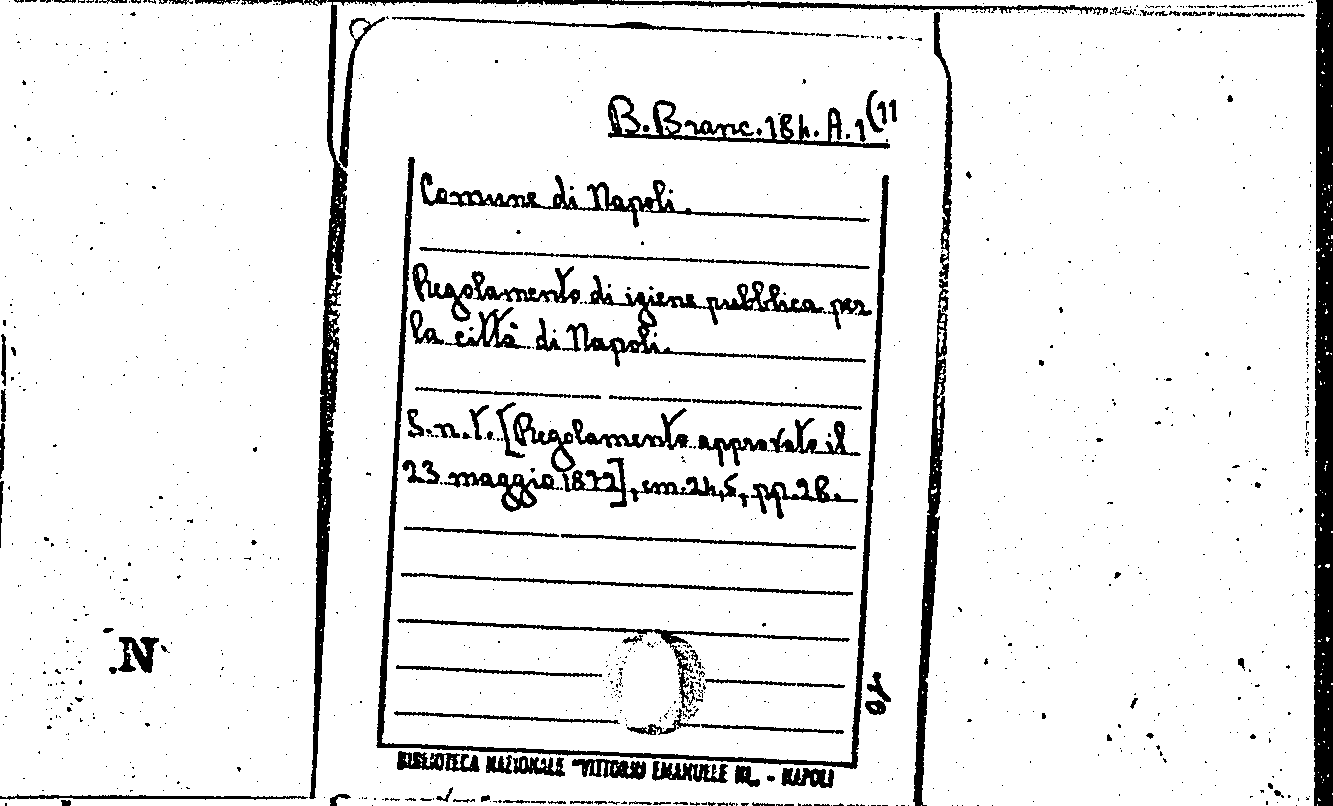 B. Branc. 184. A. 1(11
Comune di Napoli.
Regolamento di igiene pubblica per
la città di Napoli.
S.n.t. [Regolamento approvato il
23 maggio 1872], cm. 24,5, pp. 28.
N
BIBLIOTECA NAZIONALE "VITTORIO EMANUELE III" - NAPOLI